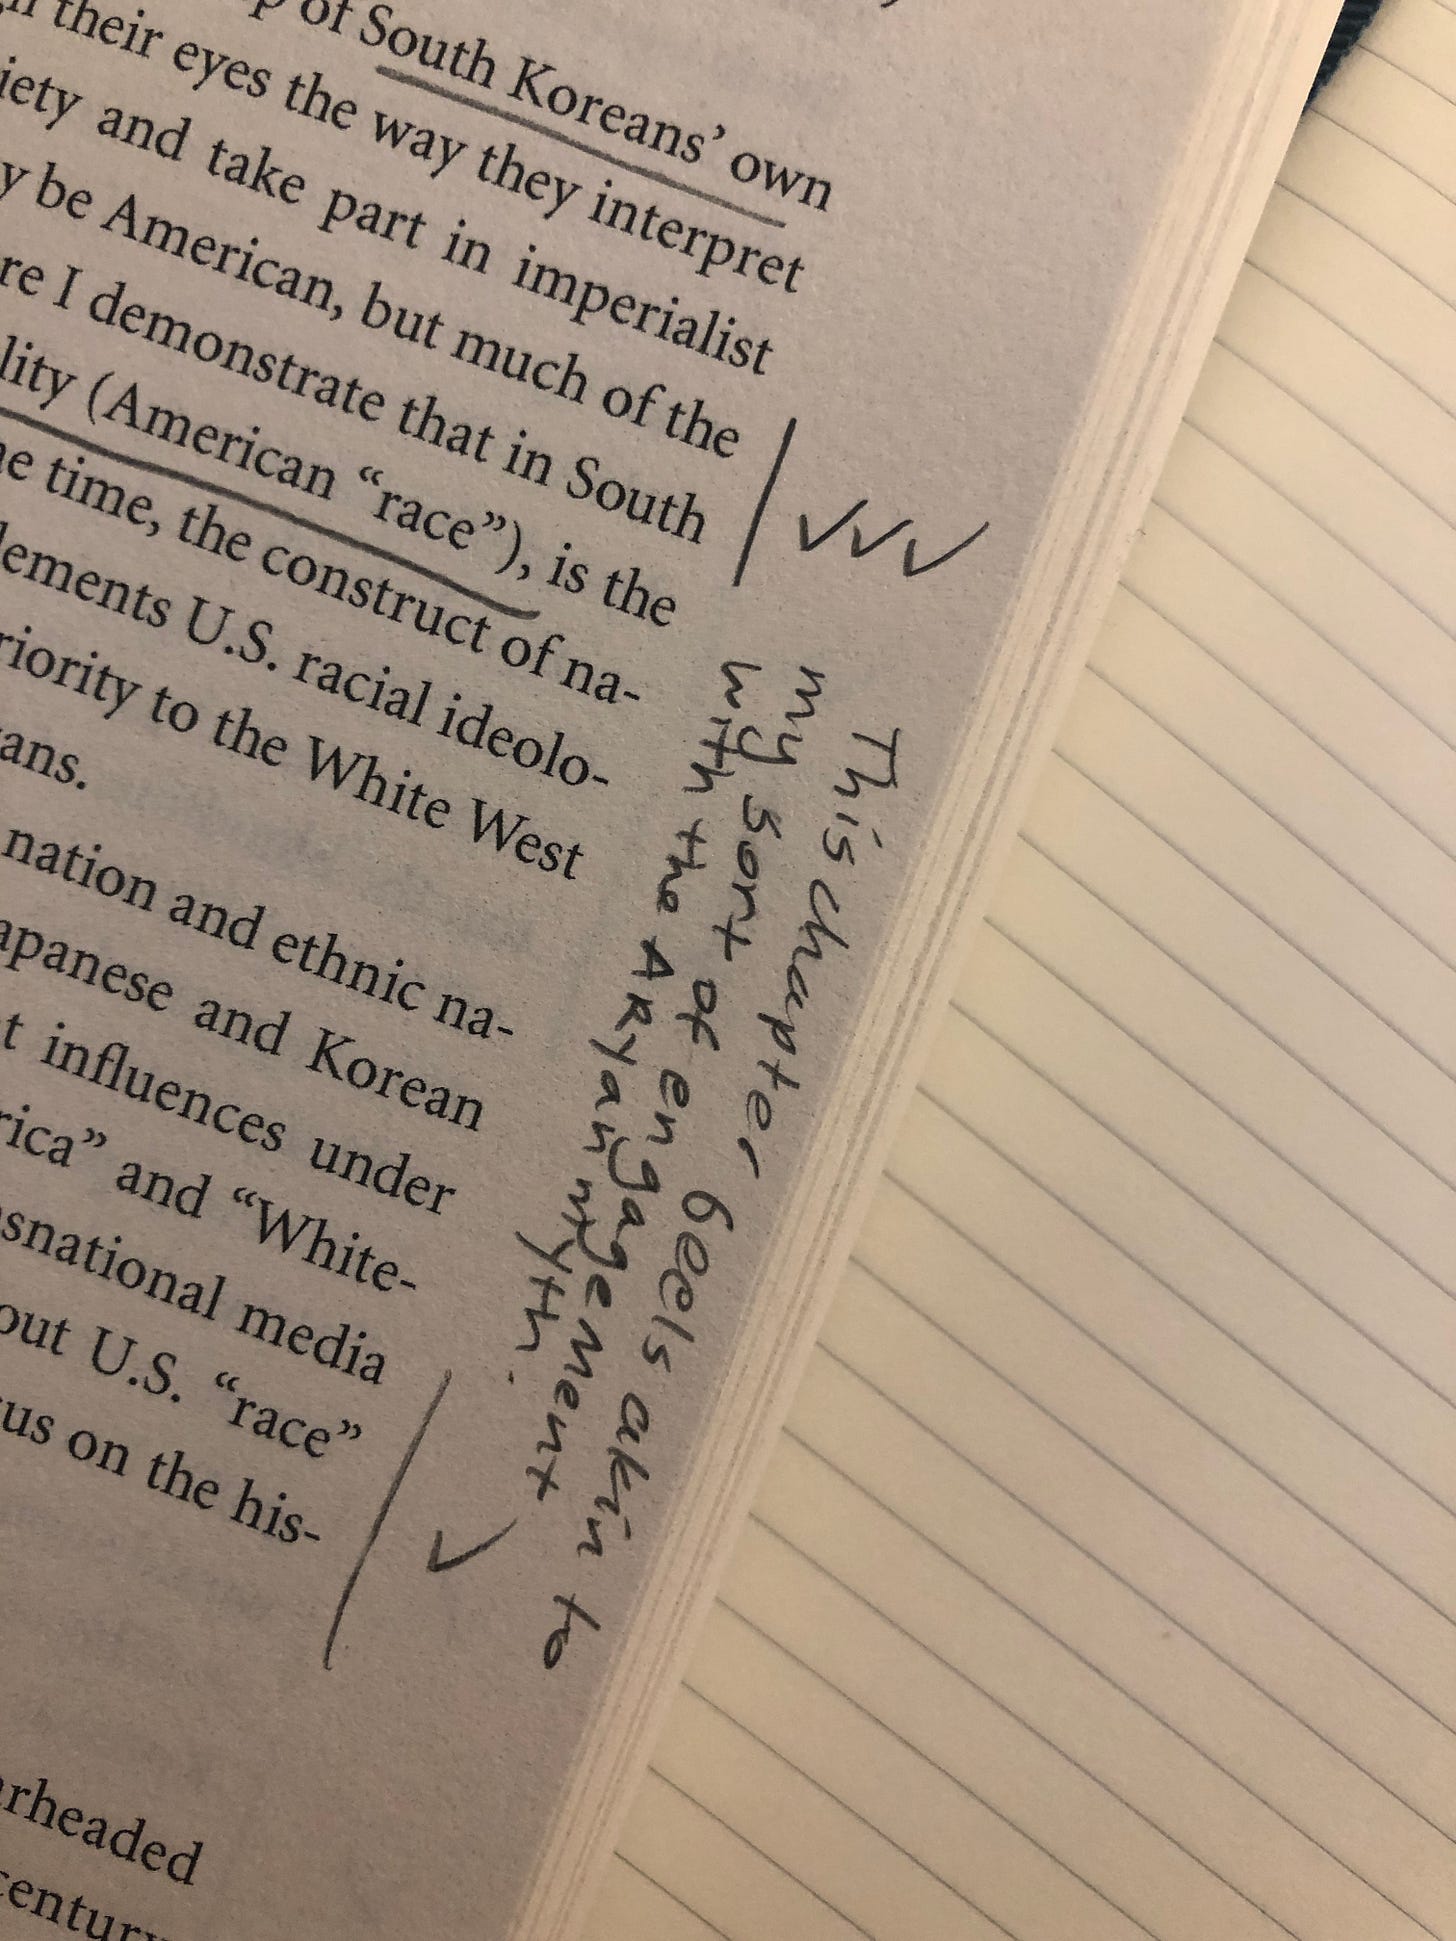 of South Koreans' own
their eyes the way they interpret
and take part in imperialist
be American, but much of the
I demonstrate that in South
(American "race"), is the
time, the construct of na-
U.S. racial ideolo-
to the White West
nation and ethnic na-
and Korean
influences under
and "White-
media
U.S. "race"
on the his-
This chapter feels akin to
my sort of engagement
with the ARyan myth.